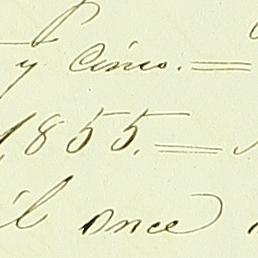 y Cinco. =
1855. =
il once